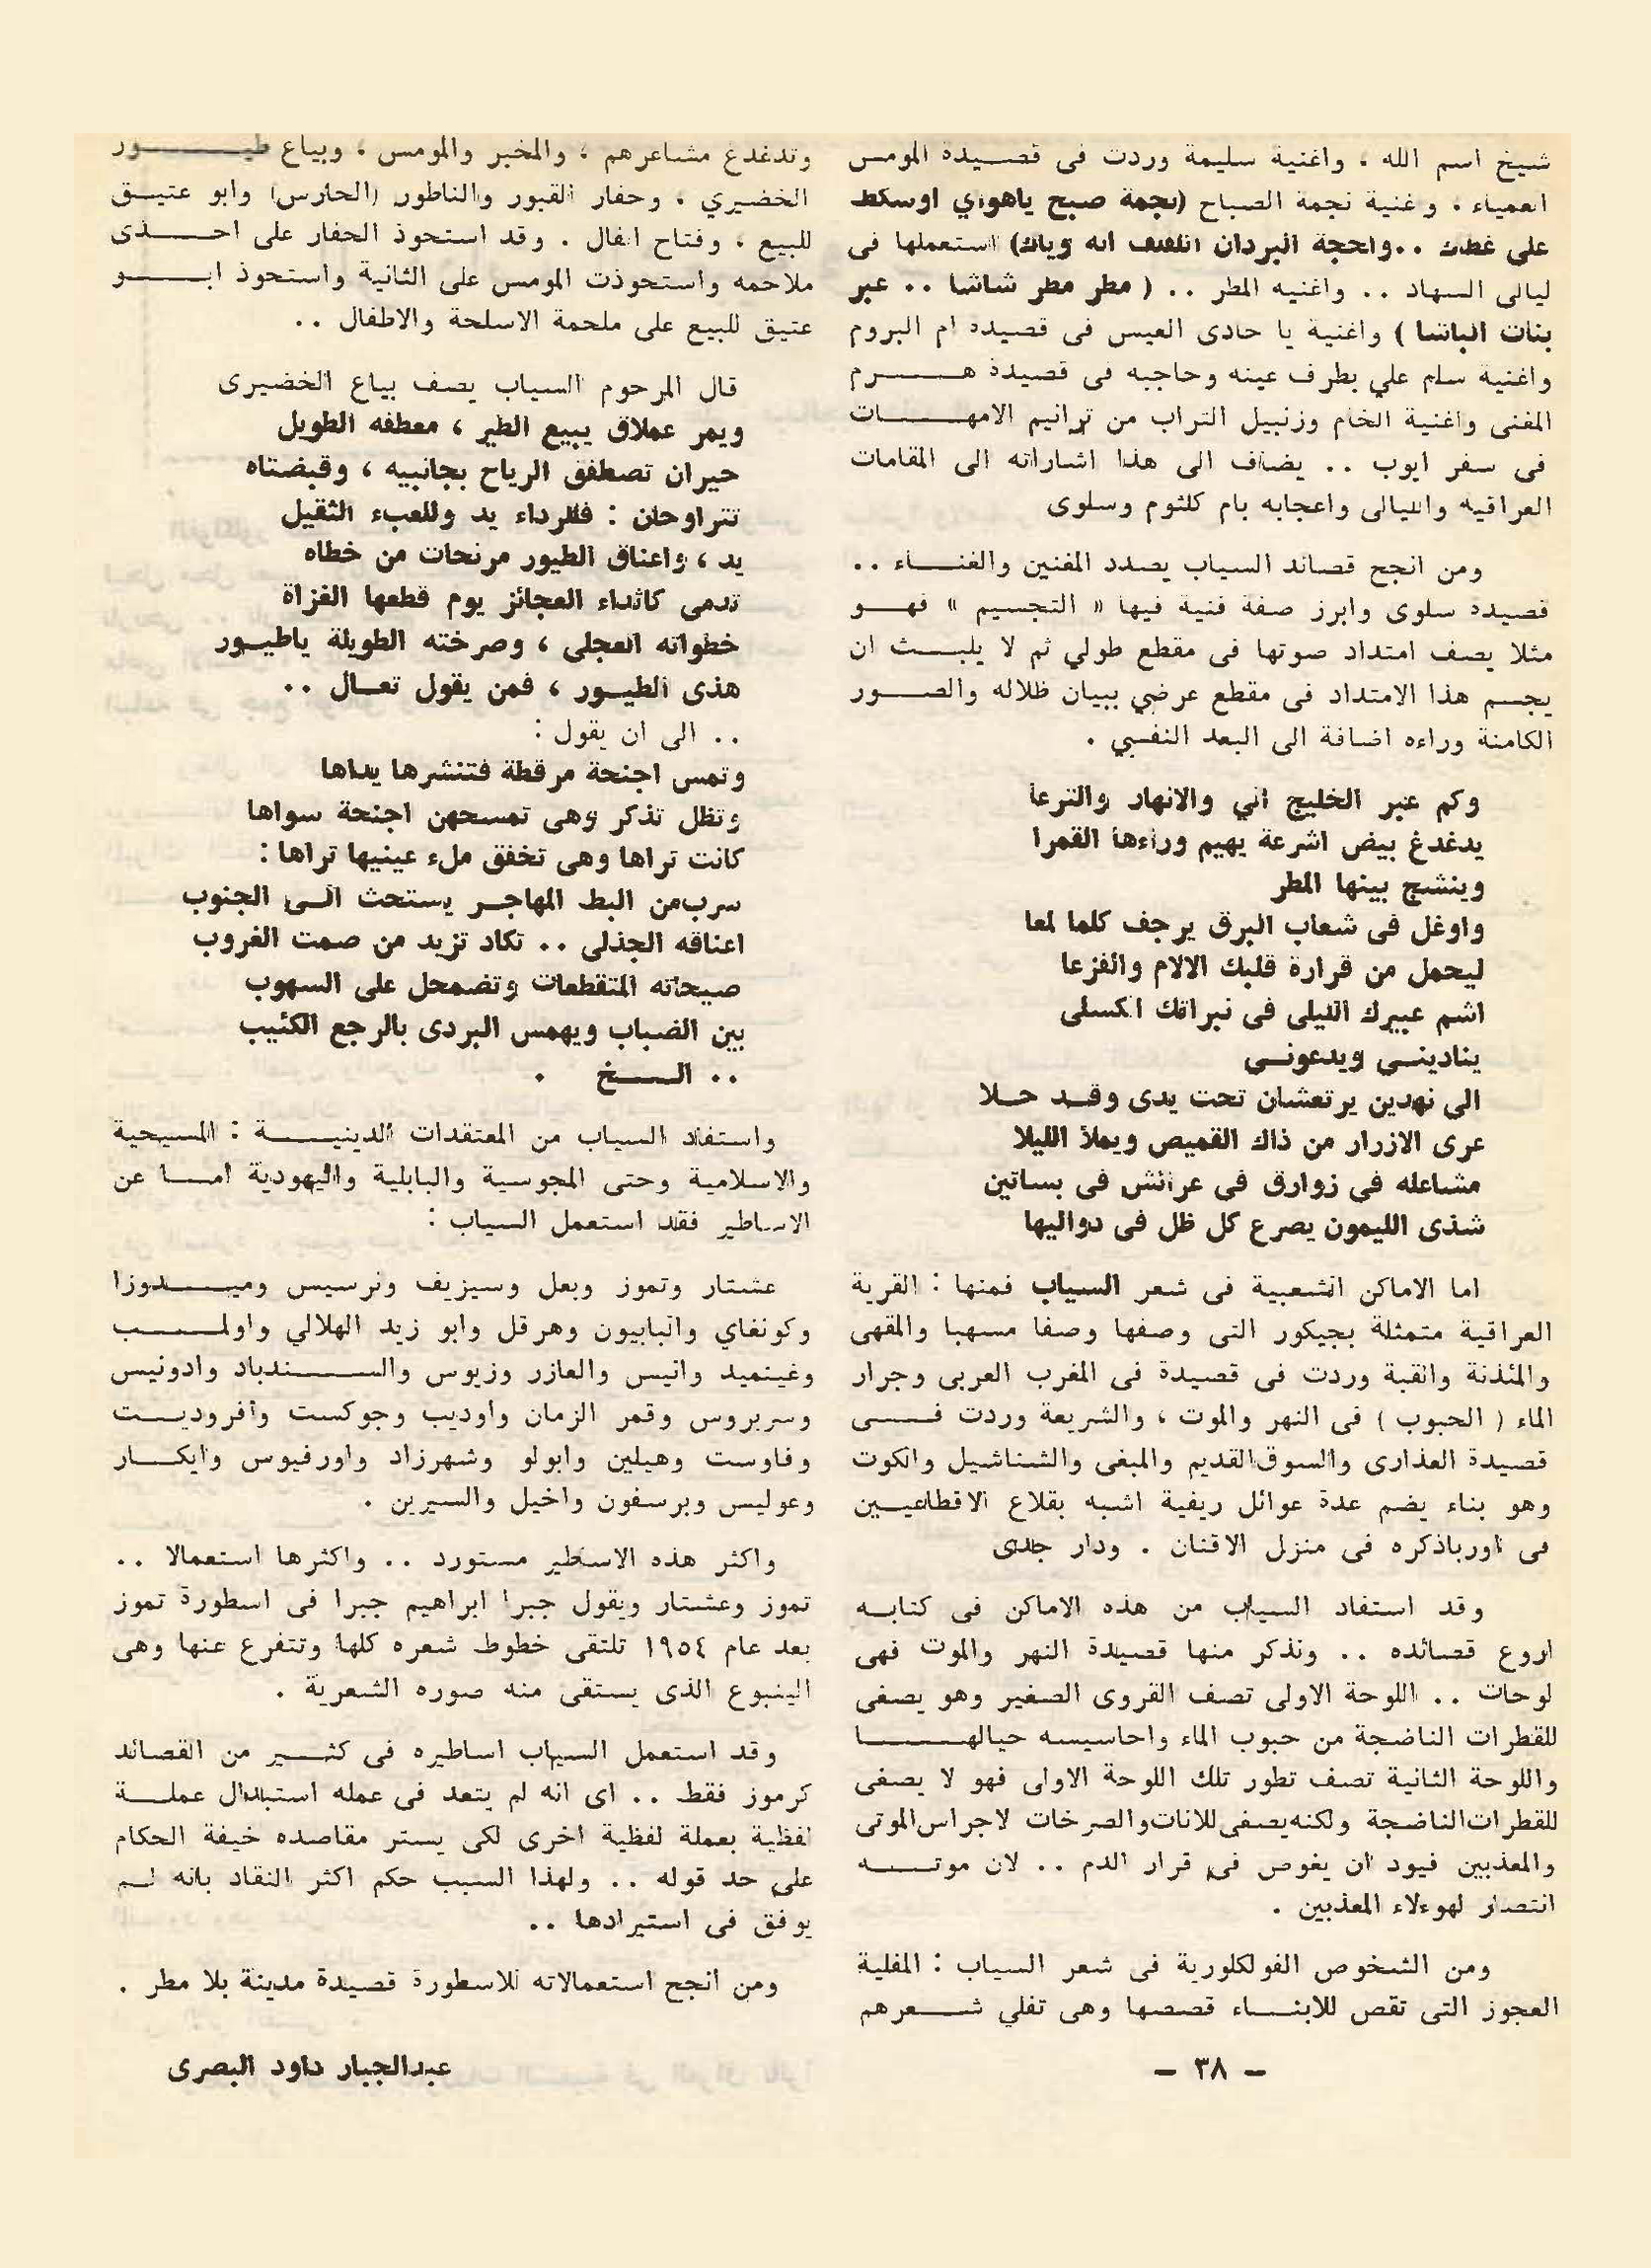 شيخ اسم الله ، واغنية سليمة وردت فى قصيدة المومس
العمياء ، وغنية نجمة الصباح (نجمة صبح ياهواي اوسكط
على غطاك ..واحجة البردان اتلفلف انه وياك) استعملها فى
ليالى السهاد .. واغنيه المطر .. ( مطر مطر شاشا .. عبر
بنات الباشا ) واغنية يا حادى العيس فى قصيدة ام البروم
واغنية سلم علي بطرف عينه وحاجبه فى قصيدة هـــرم
المغنى واغنية الخام وزنبيل التراب من ترانيم الامهـــات
فى سفر ايوب .. يضاف الى هذا اشاراته الى المقامات
العراقيه والليالى واعجابه بام كلثوم وسلوى
ومن انجح قصائد السياب بصدد المغنين والغنــاء ..
قصيدة سلوى وابرز صفة فنية فيها « التجسيم » فهــو
مثلا يصف امتداد صوتها فى مقطع طولي ثم لا يلبــث ان
يجسم هذا الامتداد فى مقطع عرضي ببيان ظلاله والصــور
الكامنة وراءه اضافة الى البعد النفسي .
وكم عبر الخليج الي والانهار والترعا
يدغدغ بيض اشرعة يهيم وراءها القمرا
وينشج بينها المطر
واوغل فى شعاب البرق يرجف كلما لمعا
ليحمل من قرارة قلبك الالام والفزعا
اشم عبيرك الليلى فى نبراتك الكسلى
ينادينــي ويدعونــي
الى نهدين يرتعشان تحت يدى وقــد حــلا
عرى الازرار من ذاك القميص ويملأ الليلا
مشاعله فى زوارق فى عرائش فى بساتين
شذى الليمون يصرع كل ظل فى دواليها
اما الاماكن الشعبية فى شعر السياب فمنها : القرية
العراقية متمثلة بجيكور التى وصفها وصفا مسهبا والمقهى
والمئذنة والقبة وردت فى قصيدة فى المغرب العربى وجرار
الماء ( الحبوب ) فى النهر والموت ، والشريعة وردت فـــى
قصيدة العذارى والسوق القديم والمبغى والشناشيل والكوت
وهو بناء يضم عدة عوائل ريفية اشبه بقلاع الاقطاعيــين
فى اورباذكره فى منزل الاقنان . ودار جدى
وقد استفاد السياب من هذه الاماكن فى كتابــه
اروع قصائده .. ونذكر منها قصيدة النهر والموت فهى
لوحات .. اللوحة الاولى تصف القروى الصغير وهو يصغى
للقطرات الناضجة من حبوب الماء واحاسيسه حيالهـــا
واللوحة الثانية تصف تطور تلك اللوحة الاولى فهو لا يصغى
للقطرات الناضجة ولكنه يصغى للانات والصرخات لاجراس الموتى
والمعذبين فيود ان يغوص فى قرار الدم .. لان موتـــه
انتصار لهوءلاء المعذبين .
ومن الشخوص الفولكلورية فى شعر السياب : المفلية
العجوز التى تقص للابنــاء قصصها وهى تفلي شــعرهم
وتدغدغ مشاعرهم ، والمخبر والمومس ، وبياع طيـــور
الخضيري ، وحفار القبور والناطور (الحارس) وابو عتيــق
للبيع ، وفتاح الفال . وقد استحوذ الحفار على احــذى
ملاحمه واستحوذت المومس على الثانية واستحوذ ابـــو
عتيق للبيع على ملحمة الاسلحة والاطفال ..
قال المرحوم السياب يصف بياع الخضيرى
ويمر عملاق يبيع الطير ، معطفه الطويل
حيران تصطفق الرياح بجانبيه ، وقبضتاه
تتراوحان : فللرداء يد وللعبء الثقيل
يد ، واعناق الطيور مرنحات من خطاه
تدمى كاثداء العجائز يوم قطعها الغزاة
خطواته العجلى ، وصرخته الطويلة ياطيــور
هذى الطيــور ، فمن يقول تعــال ..
.. الى ان يقول :
وتمس اجنحة مرقطة فتنشرها يداها
وتظل تذكر وهى تمسحهن اجنحة سواها
كانت تراها وهى تخفق ملء عينيها تراها :
سرب من البط المهاجــر يستحث الــى الجنوب
اعناقه الجذلى .. تكاد تزيد من صمت الغروب
صيحاته المتقطعات وتضمحل على السهوب
بين الضباب ويهمس البردى بالرجع الكئيب
.. الــــخ .
واستفاد السياب من المعتقدات الدينيـــة : المسيحية
والاسلامية وحتى المجوسية والبابلية واليهودية امــا عن
الاساطير فقد استعمل السياب :
عشتار وتموز وبعل وسيزيف ونرسيس وميـــدوزا
وكونغاي والبابيون وهرقل وابو زيد الهلالي واولمــــب
وغينميد واتيس والعازر وزيوس والســـندباد وادونيس
وسربروس وقمر الزمان واوديب وجوكست وافروديــت
وفاوست وهيلين وابولو وشهرزاد واورفيوس وايكــار
وعوليس وبرسفون واخيل والسيرين .
واكثر هذه الاساطير مستورد .. واكثرها استعمالا ..
تموز وعشتار ويقول جبرا ابراهيم جبرا فى اسطورة تموز
بعد عام ١٩٥٤ تلتقى خطوط شعره كلها وتتفرع عنها وهى
الينبوع الذى يستقى منه صوره الشعرية .
وقد استعمل السياب اساطيره فى كثــير من القصائد
كرموز فقط .. اى انه لم يتعد فى عمله استبدال عملــة
لفظية بعملة لفظية اخرى لكى يستر مقاصده خيفة الحكام
على حد قوله .. ولهذا السبب حكم اكثر النقاد بانه لــم
يوفق فى استيرادها ..
ومن انجح استعمالاته للاسطورة قصيدة مدينة بلا مطر .
عبدالجبار داود البصرى
– ٣٨ –